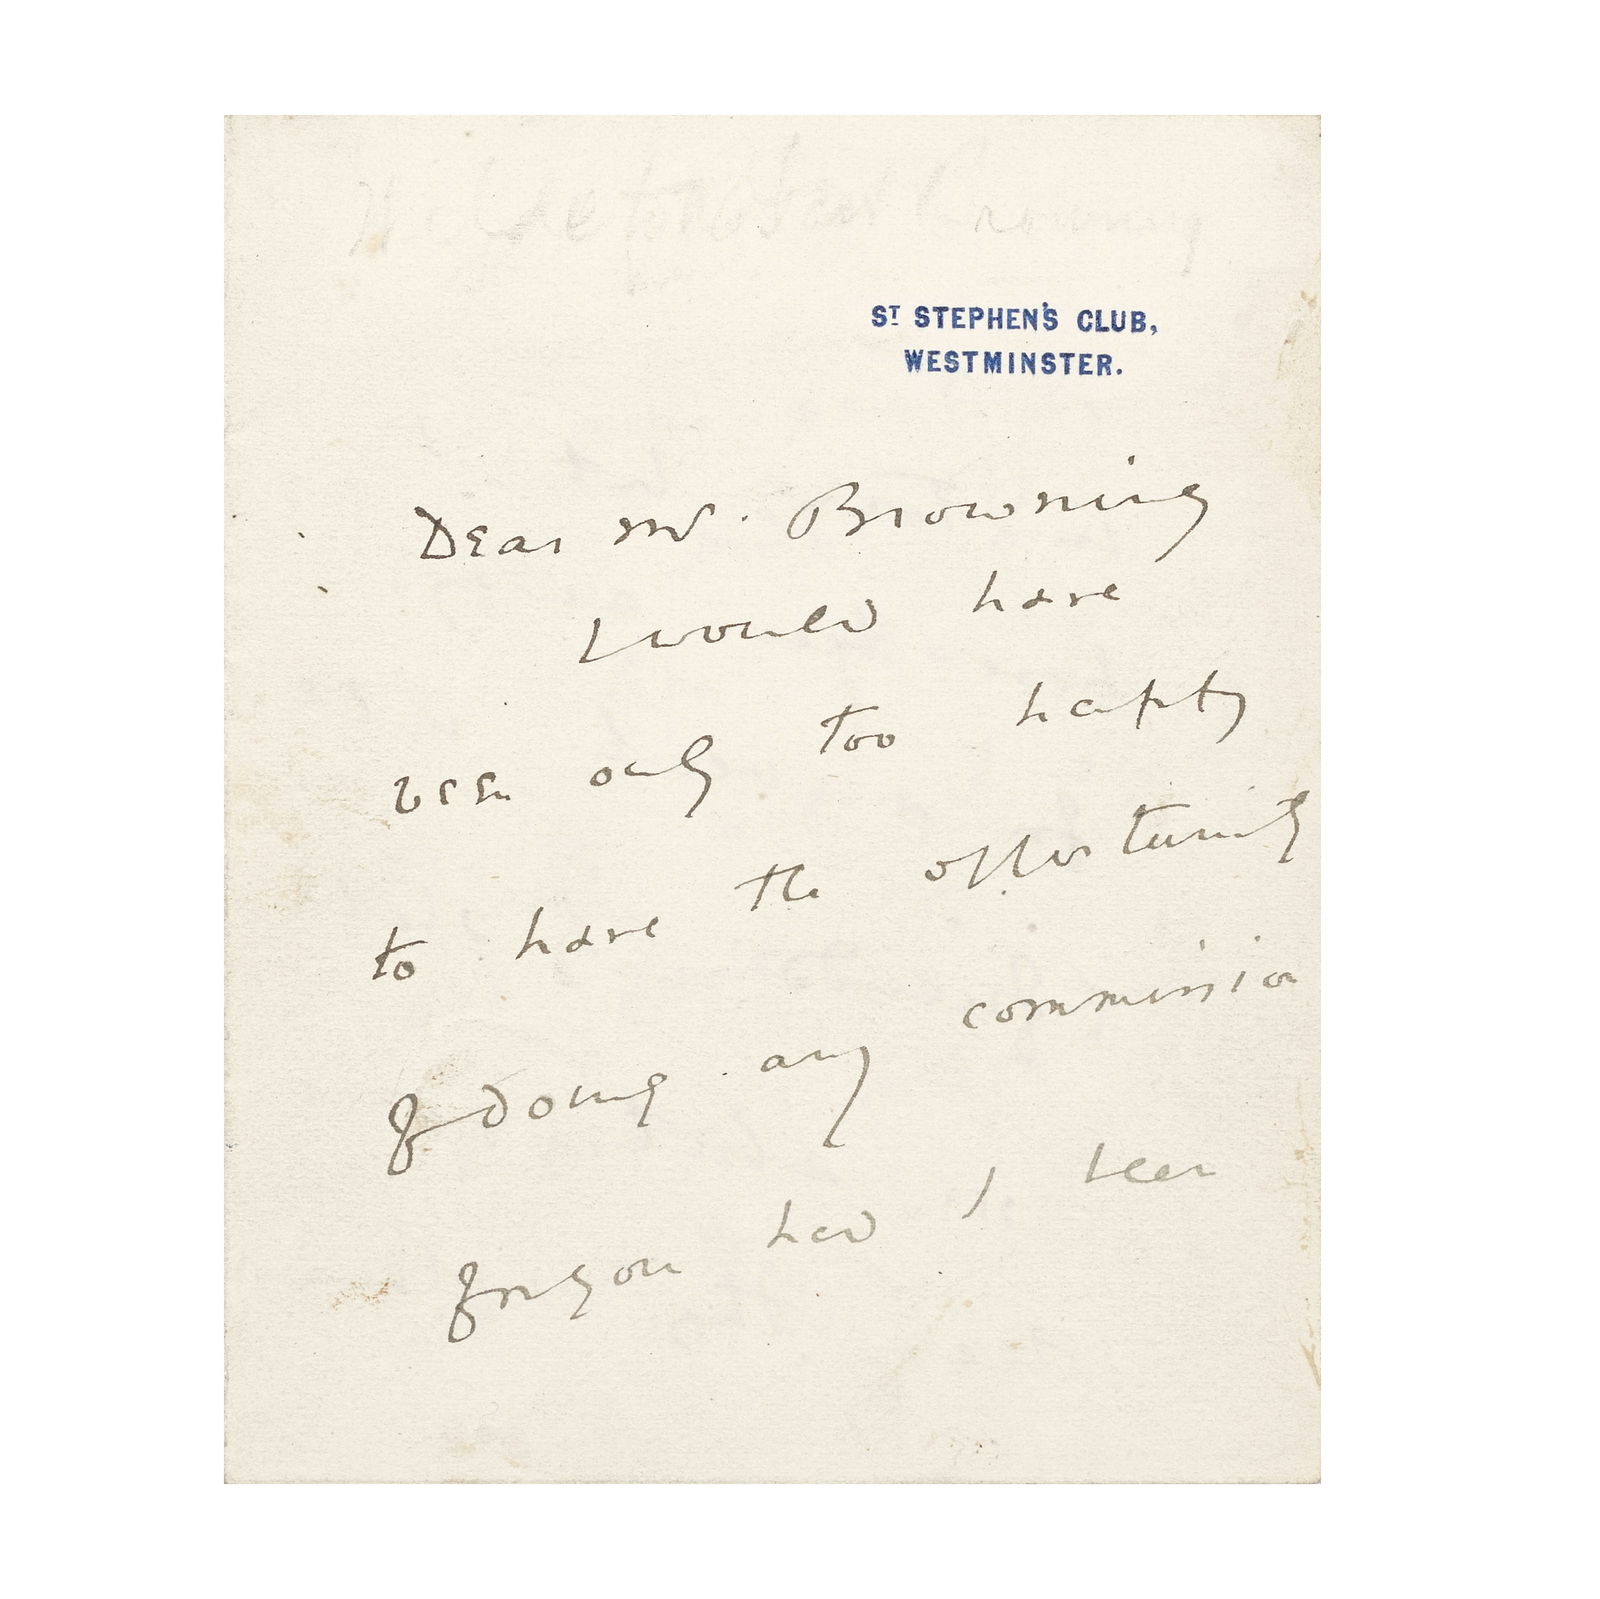 Wilde to Robert Browning
ST STEPHEN'S CLUB,
WESTMINSTER.
Dear Mr. Browning
I would have
been only too happy
to have the opportunity
of doing any commission
for you had I been